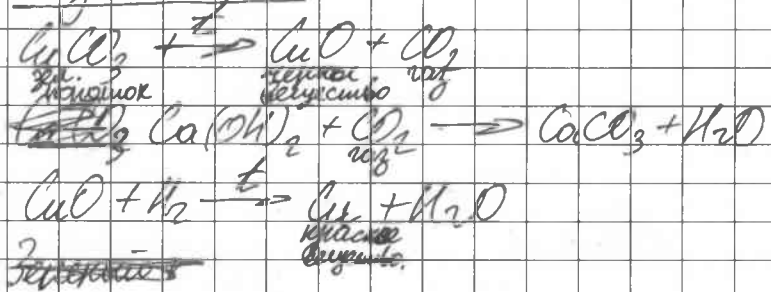 t
CuCO₃ + → CuO + CO₂
зел. порошок черное вещество газ
Ca(OH)₂ + CO₂ → CaCO₃ + H₂O
газ
CuO + H₂ t→ Cu + H₂O
красное